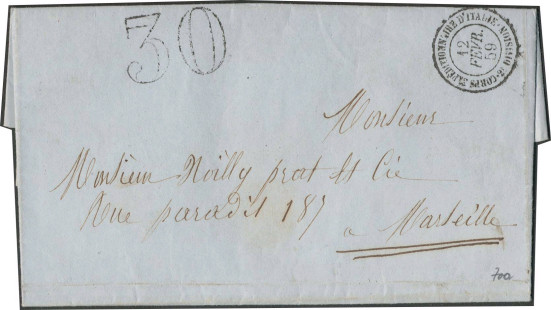 30
CORPS EXPÉDITIONNAIRE D'ITALIE DIVISION
12
FEVR.
59
Monsieur
Monsieur Noilly prat et Cie
Rue paradis 187
a Marseille
700